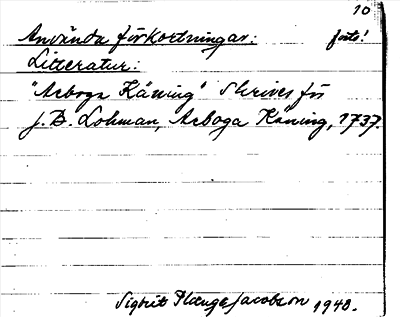 10
Använda förkortningar: forts!
Litteratur:
"Arboga Käning" skrives för
J. B. Lohman, Arboga Käning, 1737.
Sigrid Plauge Jacobson 1948.